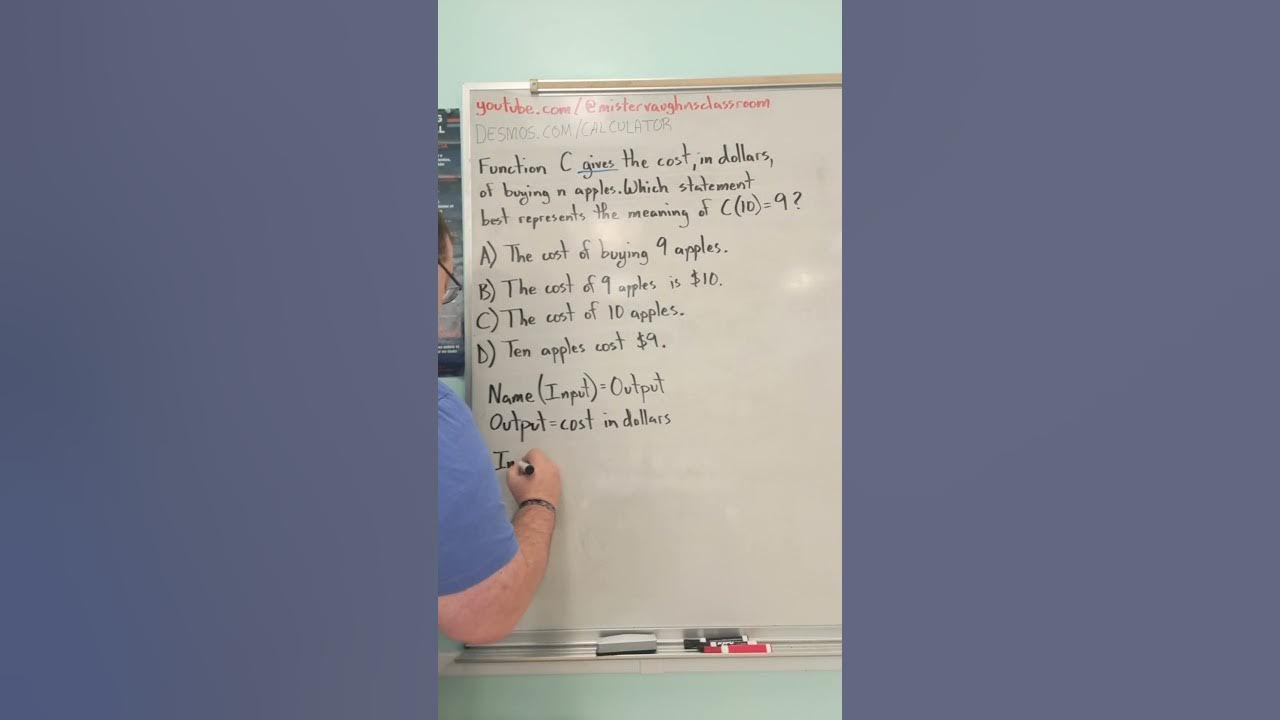 youtube.com/@mistervaughnsclassroom
DESMOS.COM/CALCULATOR
Function C gives the cost, in dollars,
of buying n apples. Which statement
best represents the meaning of C(10)=9?
A) The cost of buying 9 apples.
B) The cost of 9 apples is $10.
C) The cost of 10 apples.
D) Ten apples cost $9.
Name (Input)=Output
Output=cost in dollars
In